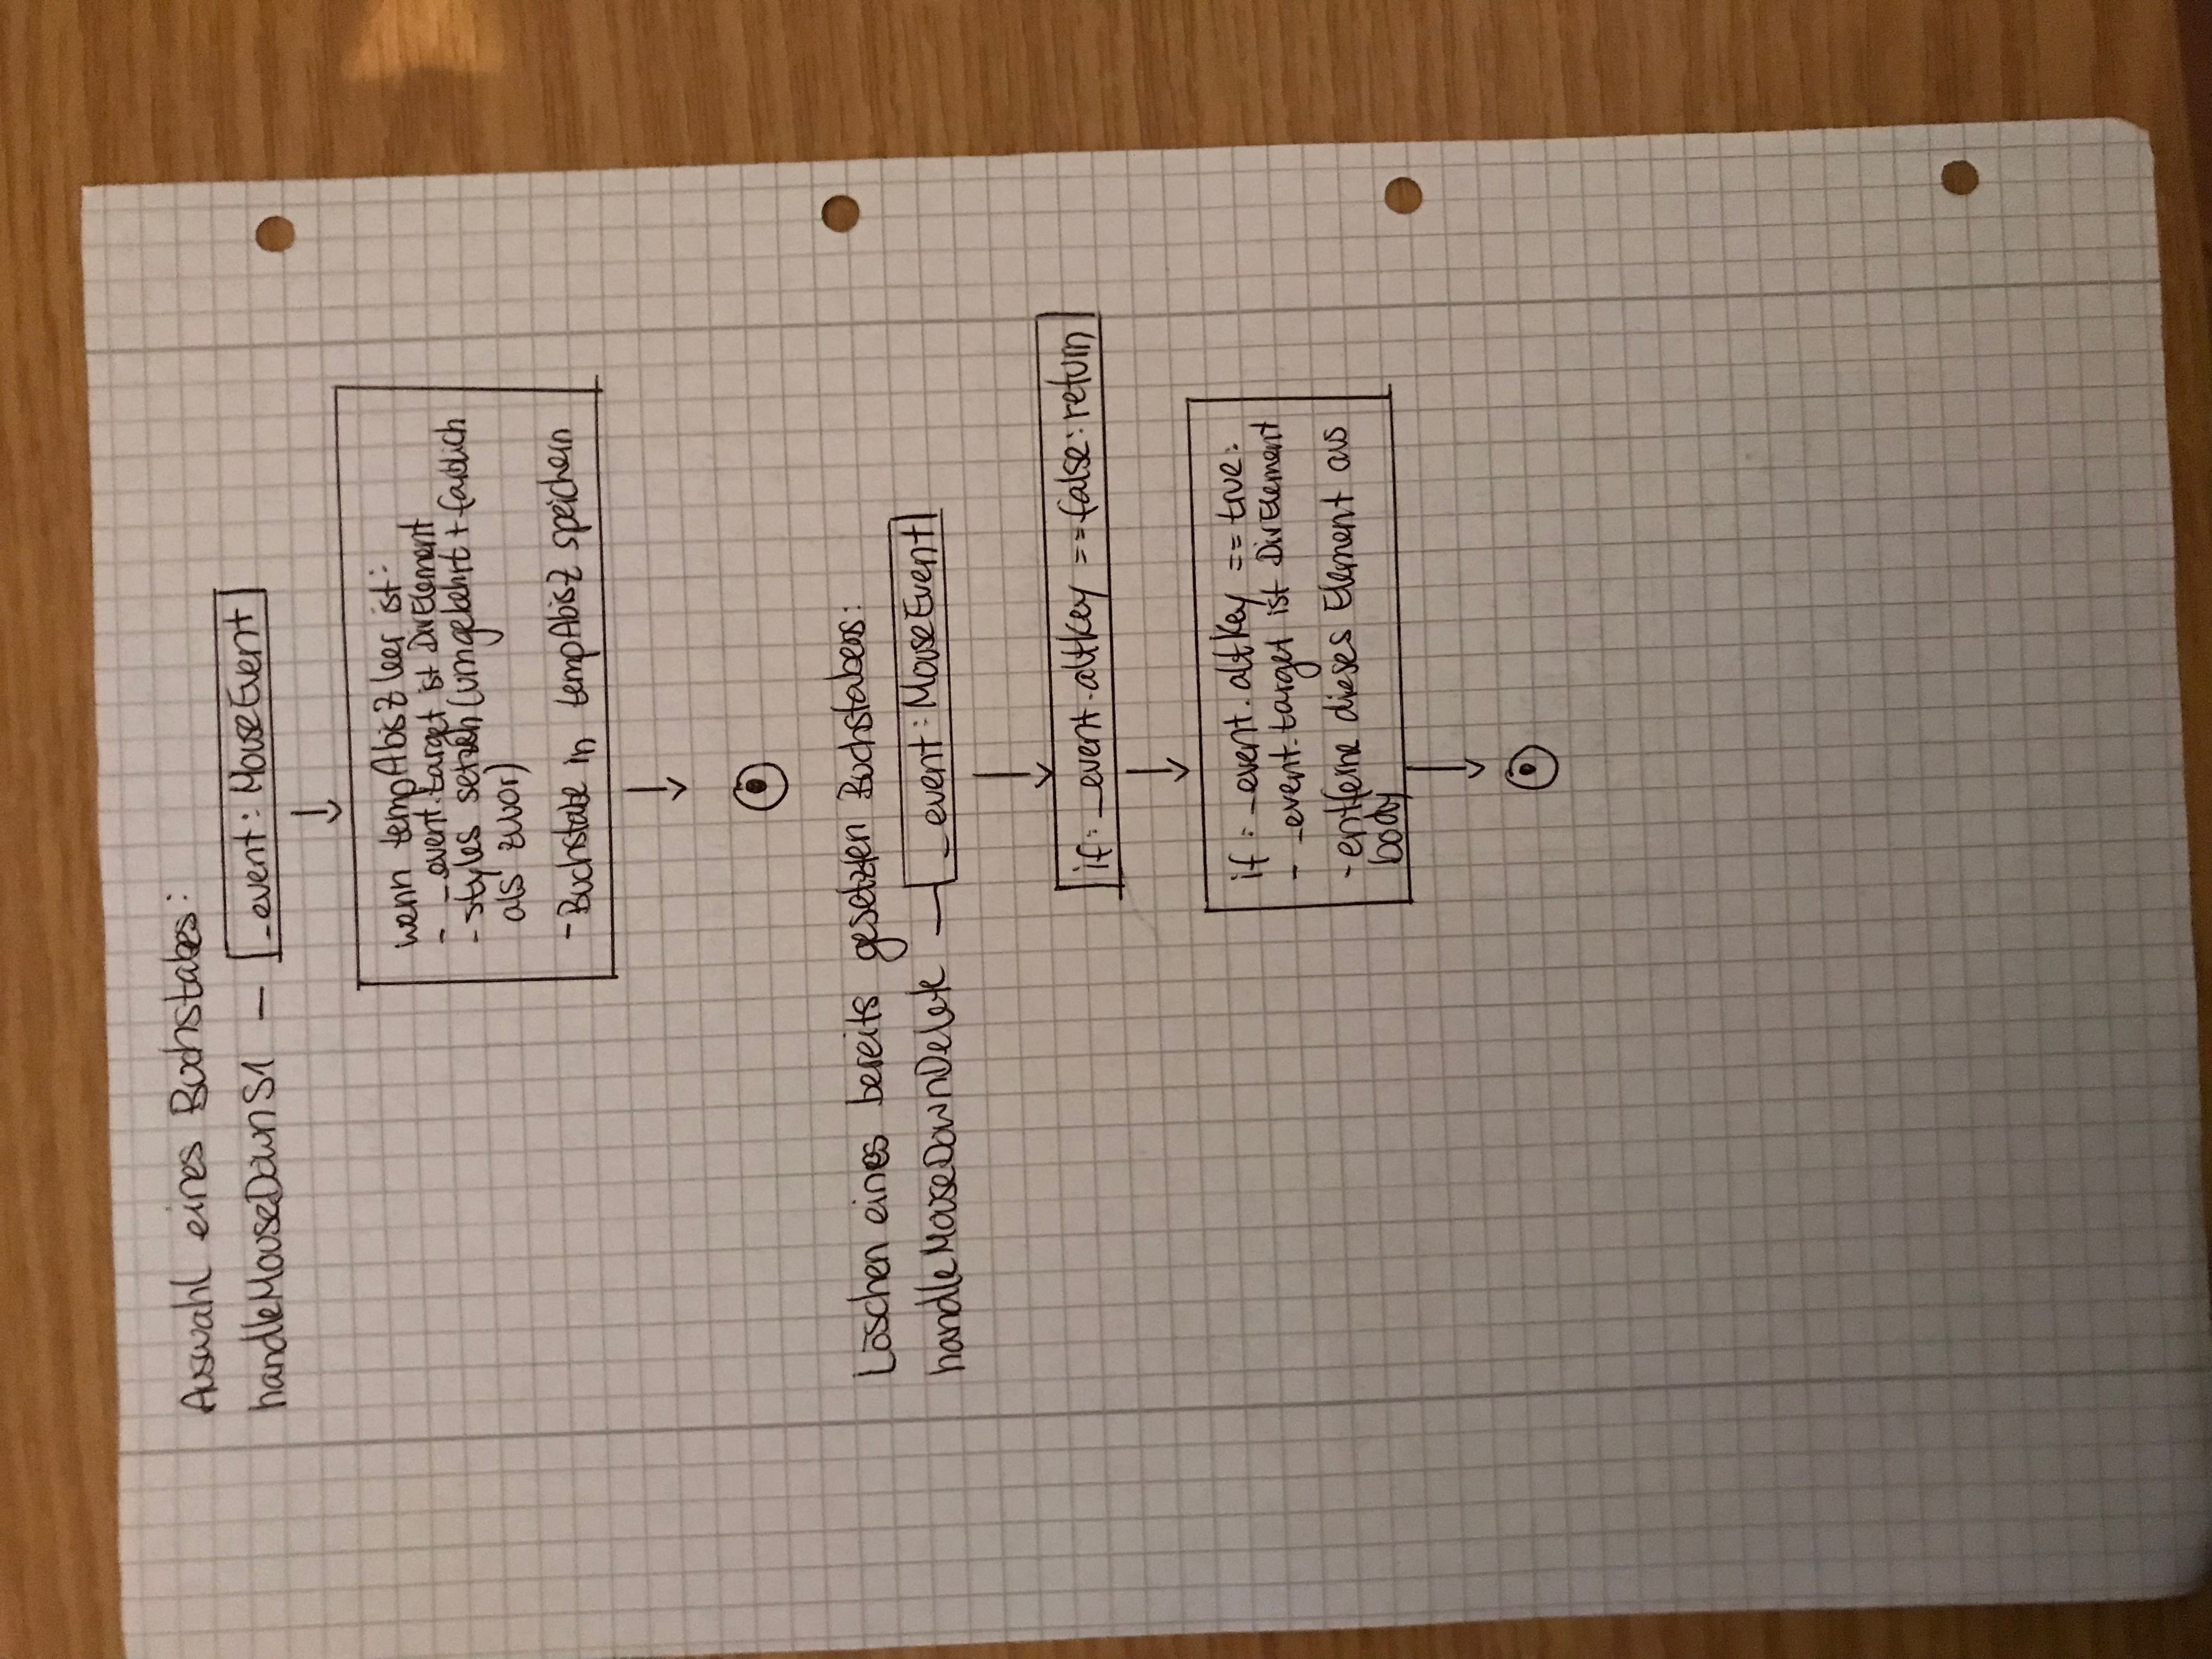 Auswahl eines Buchstabes:
handleMouseDownS1 — _event: MouseEvent
wenn tempAbisZ leer ist:
- _event.target ist DivElement
- styles setzen (umgekehrt + farblich
als zuvor)
- Buchstabe in tempAbisZ speichern
Löschen eines bereits gesetzten Buchstabens:
handleMouseDownDelete — _event: MouseEvent
if: _event.altKey == false: return
if: _event.altKey == true:
- _event.target ist DivElement
- entferne dieses Element aus
body